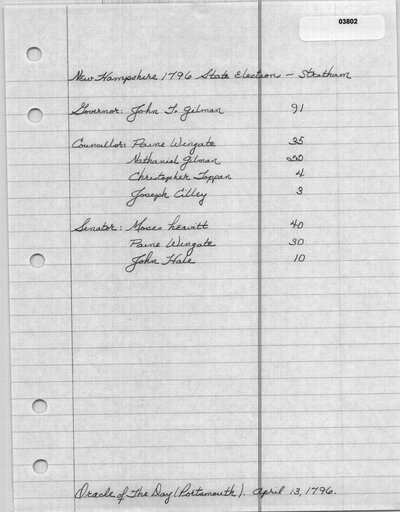 03802
New Hampshire 1796 State Election - Stratham
Governor: John T. Gilman 91
Councillor: Paine Wingate 35
Nathaniel Gilman 22
Christopher Toppan 4
Joseph Cilley 3
Senator: Moses Leavitt 40
Paine Wingate 30
John Hale 10
Oracle of The Day (Portsmouth). April 13, 1796.